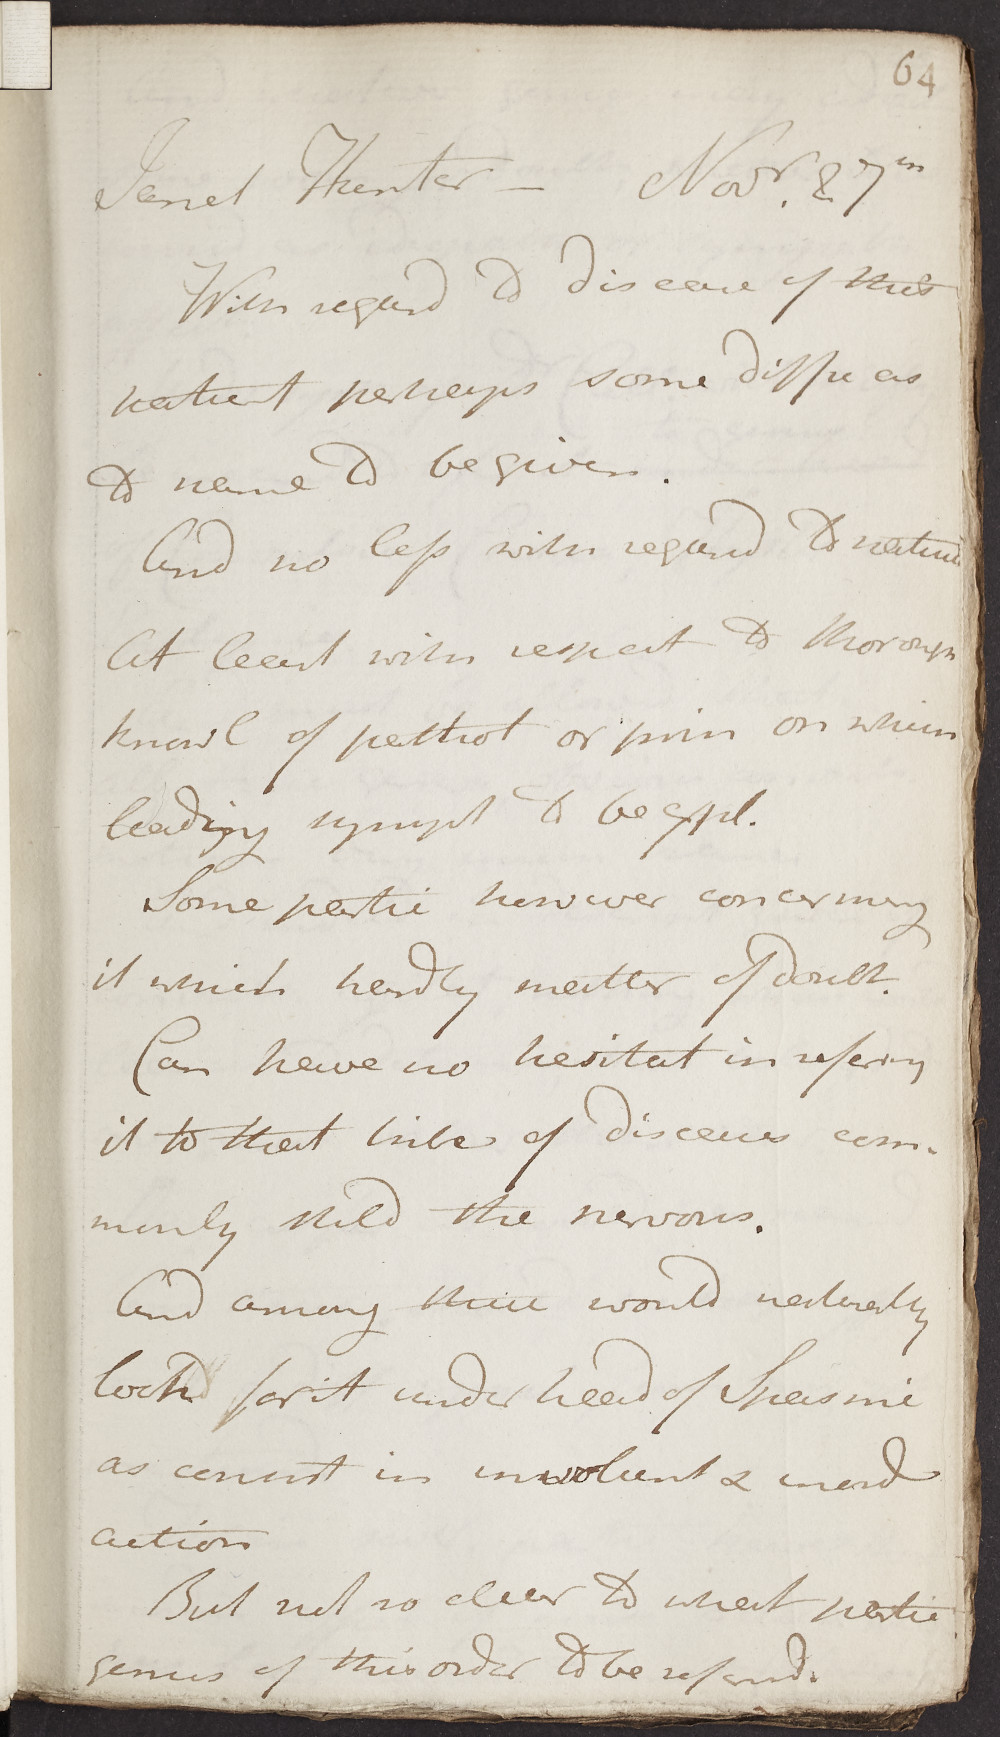 64
Janet Hunter – Novr. 27th
With regard to disease of this
patient perhaps some diffic as
to name to be given.
And no less with regard to nature
At least with respect to thorough
knowl of pathol or prin on which
leading sympt to be expl.
Some partic however concerning
it which hardly matter of doubt.
Can have no hesitat in refering
it to that tribe of diseases com-
monly stild the nervous.
And among these would naturally
look for it under head of Spasmi
as consist in involunt & inord
action
But not so clear to what partic
genus of this order to be referrd.